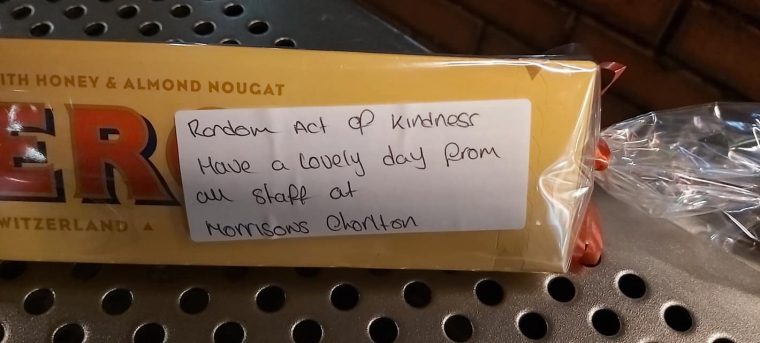 ITH HONEY & ALMOND NOUGAT
ER
WITZERLAND
Random Act of Kindness
Have a lovely day from
all staff at
Morrisons Chorlton